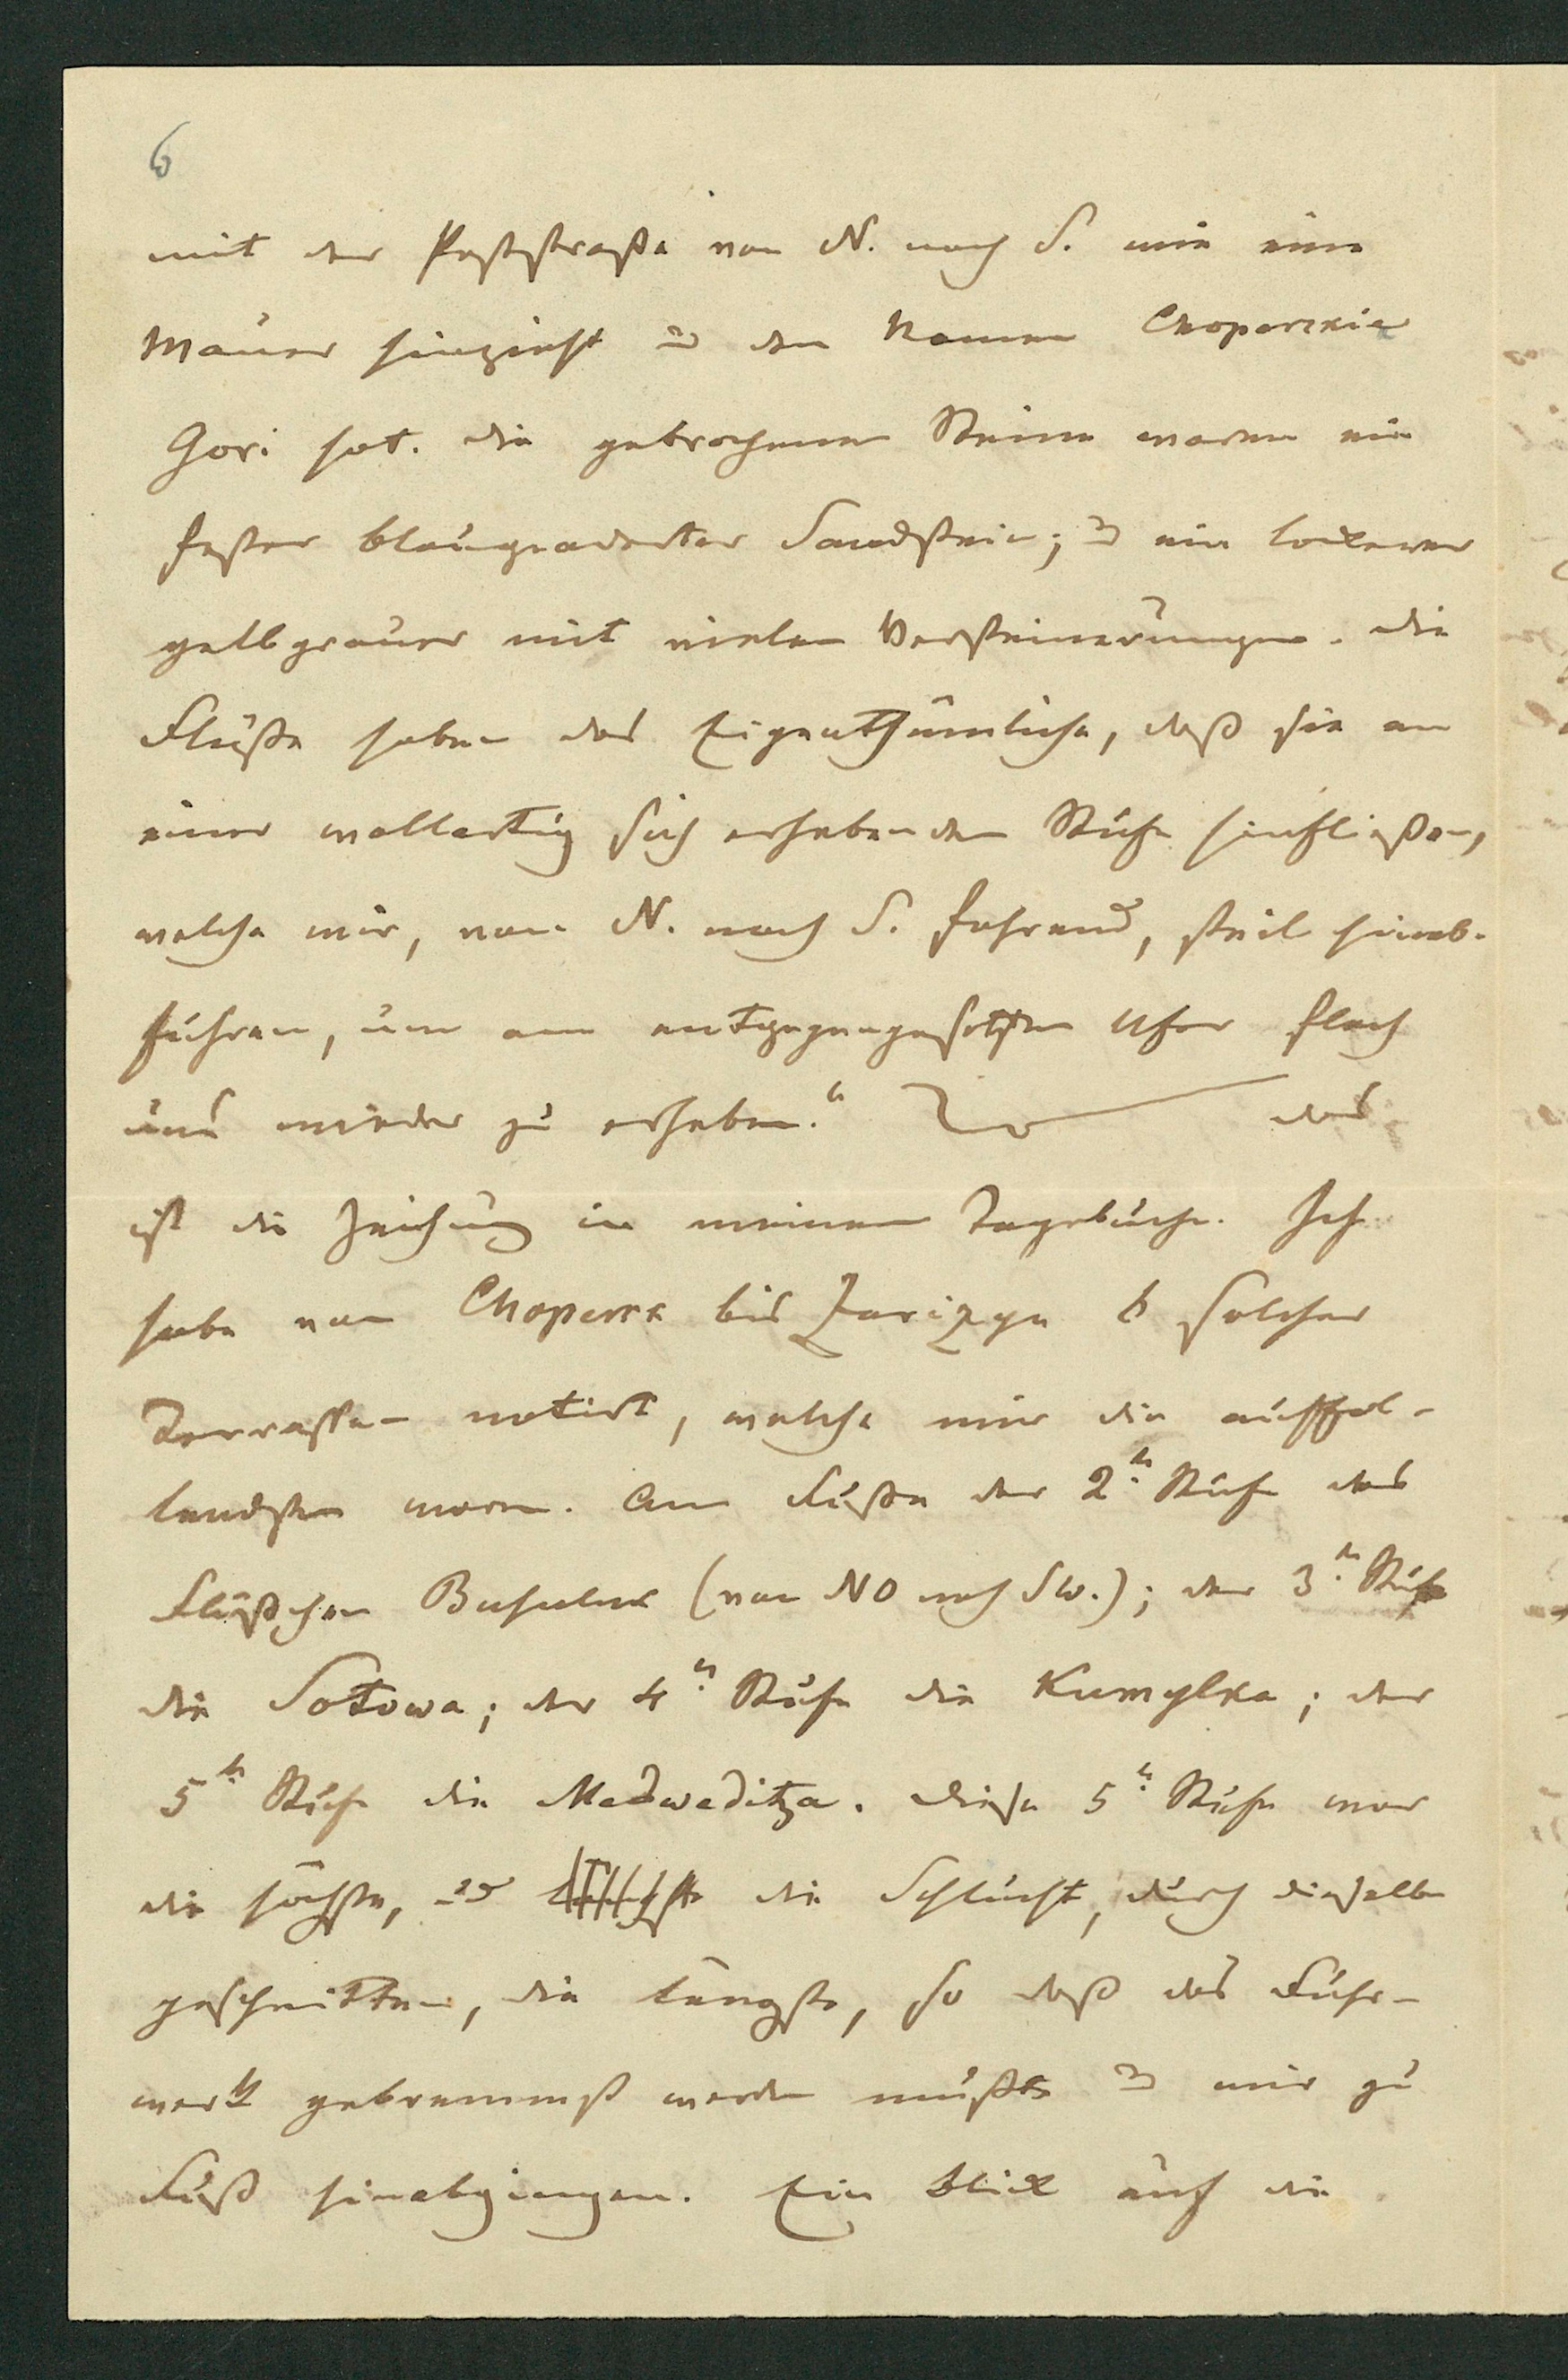 6
mit der Poststraße von N. nach S. wie eine
Mauer hinzieht u den Namen Choperskie
Gori hat. Die gebrochenen Steine waren ein
fester blaugeaderter Sandstein; u ein lockerer
gelbgrauer mit vielen Versteinerungen. Die
Flüße haben das Eigenthümliche, daß sie an
einer wallartig sich erhebenden Stufe hinfließen,
welche wir, von N. nach S. fahrend, steil hinab-
fuhren, um am entgegengesetzten Ufer flach
uns wieder zu erheben." das
ist die Zeichnung in meinem Tagebuche. Ich
habe von Chopersk bis Zarizyn 6 solcher
Terrassen notirt, welche mir die auffal-
lendsten waren. Am Fuße der 2tn Stufe das
Flüßchen Busuluk (von NO nach SW.); der 3tn Stufe
die Sotowa; der 4tn Stufe die Kumylka; der
5tn Stufe die Medweditza. Diese 5te Stufe war
die höchste, u die Schlucht, durch dieselbe
geschnitten, die längste, so daß das Fuhr-
werk gebremmst werden mußte u wir zu
Fuß hinabgingen. Ein Blick auf die